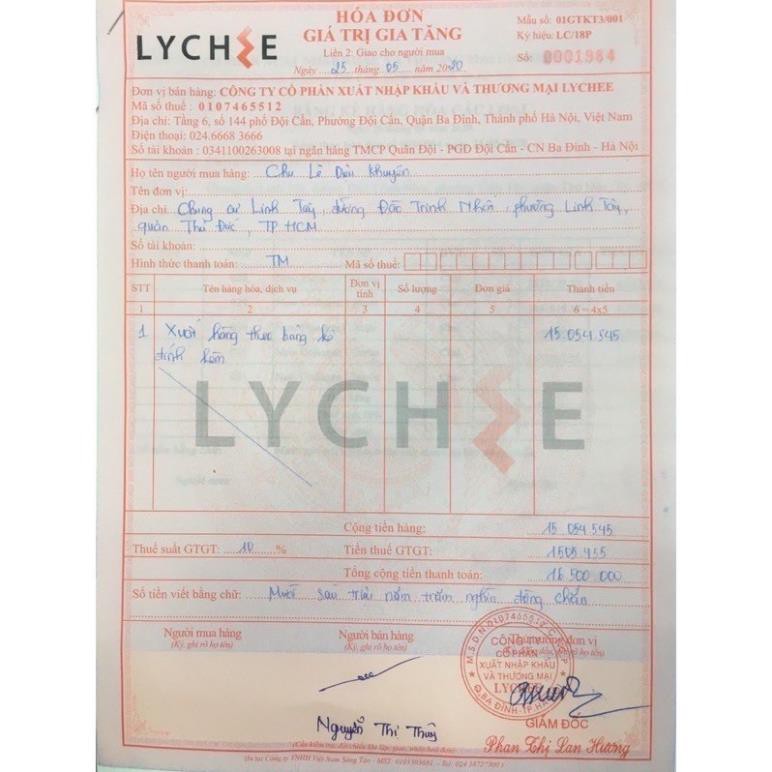 LYCHEE
HÓA ĐƠN
GIÁ TRỊ GIA TĂNG
Liên 2: Giao cho người mua
Ngày 25 tháng 05 năm 2020
Mẫu số: 01GTKT3/001
Ký hiệu: LC/18P
Số: 0001984
Đơn vị bán hàng: CÔNG TY CỔ PHẦN XUẤT NHẬP KHẨU VÀ THƯƠNG MẠI LYCHEE
Mã số thuế: 0107465512
Địa chỉ: Tầng 6, số 144 phố Đội Cấn, Phường Đội Cấn, Quận Ba Đình, Thành phố Hà Nội, Việt Nam
Điện thoại: 024.6668 3666
Số tài khoản: 0341100263008 tại ngân hàng TMCP Quân Đội - PGD Đội Cấn - CN Ba Đình - Hà Nội
Họ tên người mua hàng: Chu Lê Diệu Khuyên
Tên đơn vị:
Địa chỉ: Chung cư Linh Tây, đường Đào Trinh Nhất, phường Linh Tây,
quận Thủ Đức, TP HCM
Số tài khoản:
Hình thức thanh toán: TM Mã số thuế:
STT Tên hàng hóa, dịch vụ Đơn vị tính Số lượng Đơn giá Thành tiền
1 2 3 4 5 6 = 4x5
1 Xuất hàng theo bảng kê 15.054.545
đính kèm
LYCHEE
Cộng tiền hàng: 15 054.545
Thuế suất GTGT: 10 % Tiền thuế GTGT: 1505 455
Tổng cộng tiền thanh toán: 16 500 000
Số tiền viết bằng chữ: Mười sáu triệu năm trăm nghìn đồng chẵn
Người mua hàng Người bán hàng Thủ trưởng đơn vị
(Ký, ghi rõ họ tên) (Ký, ghi rõ họ tên)
M.S.D.N:0107465512
CÔNG TY
CỔ PHẦN
XUẤT NHẬP KHẨU
VÀ THƯƠNG MẠI
LYCHEE
Q.BA ĐÌNH-TP.HÀ NỘI
Nguyễn Thị Thúy
GIÁM ĐỐC
Phan Thị Lan Hương